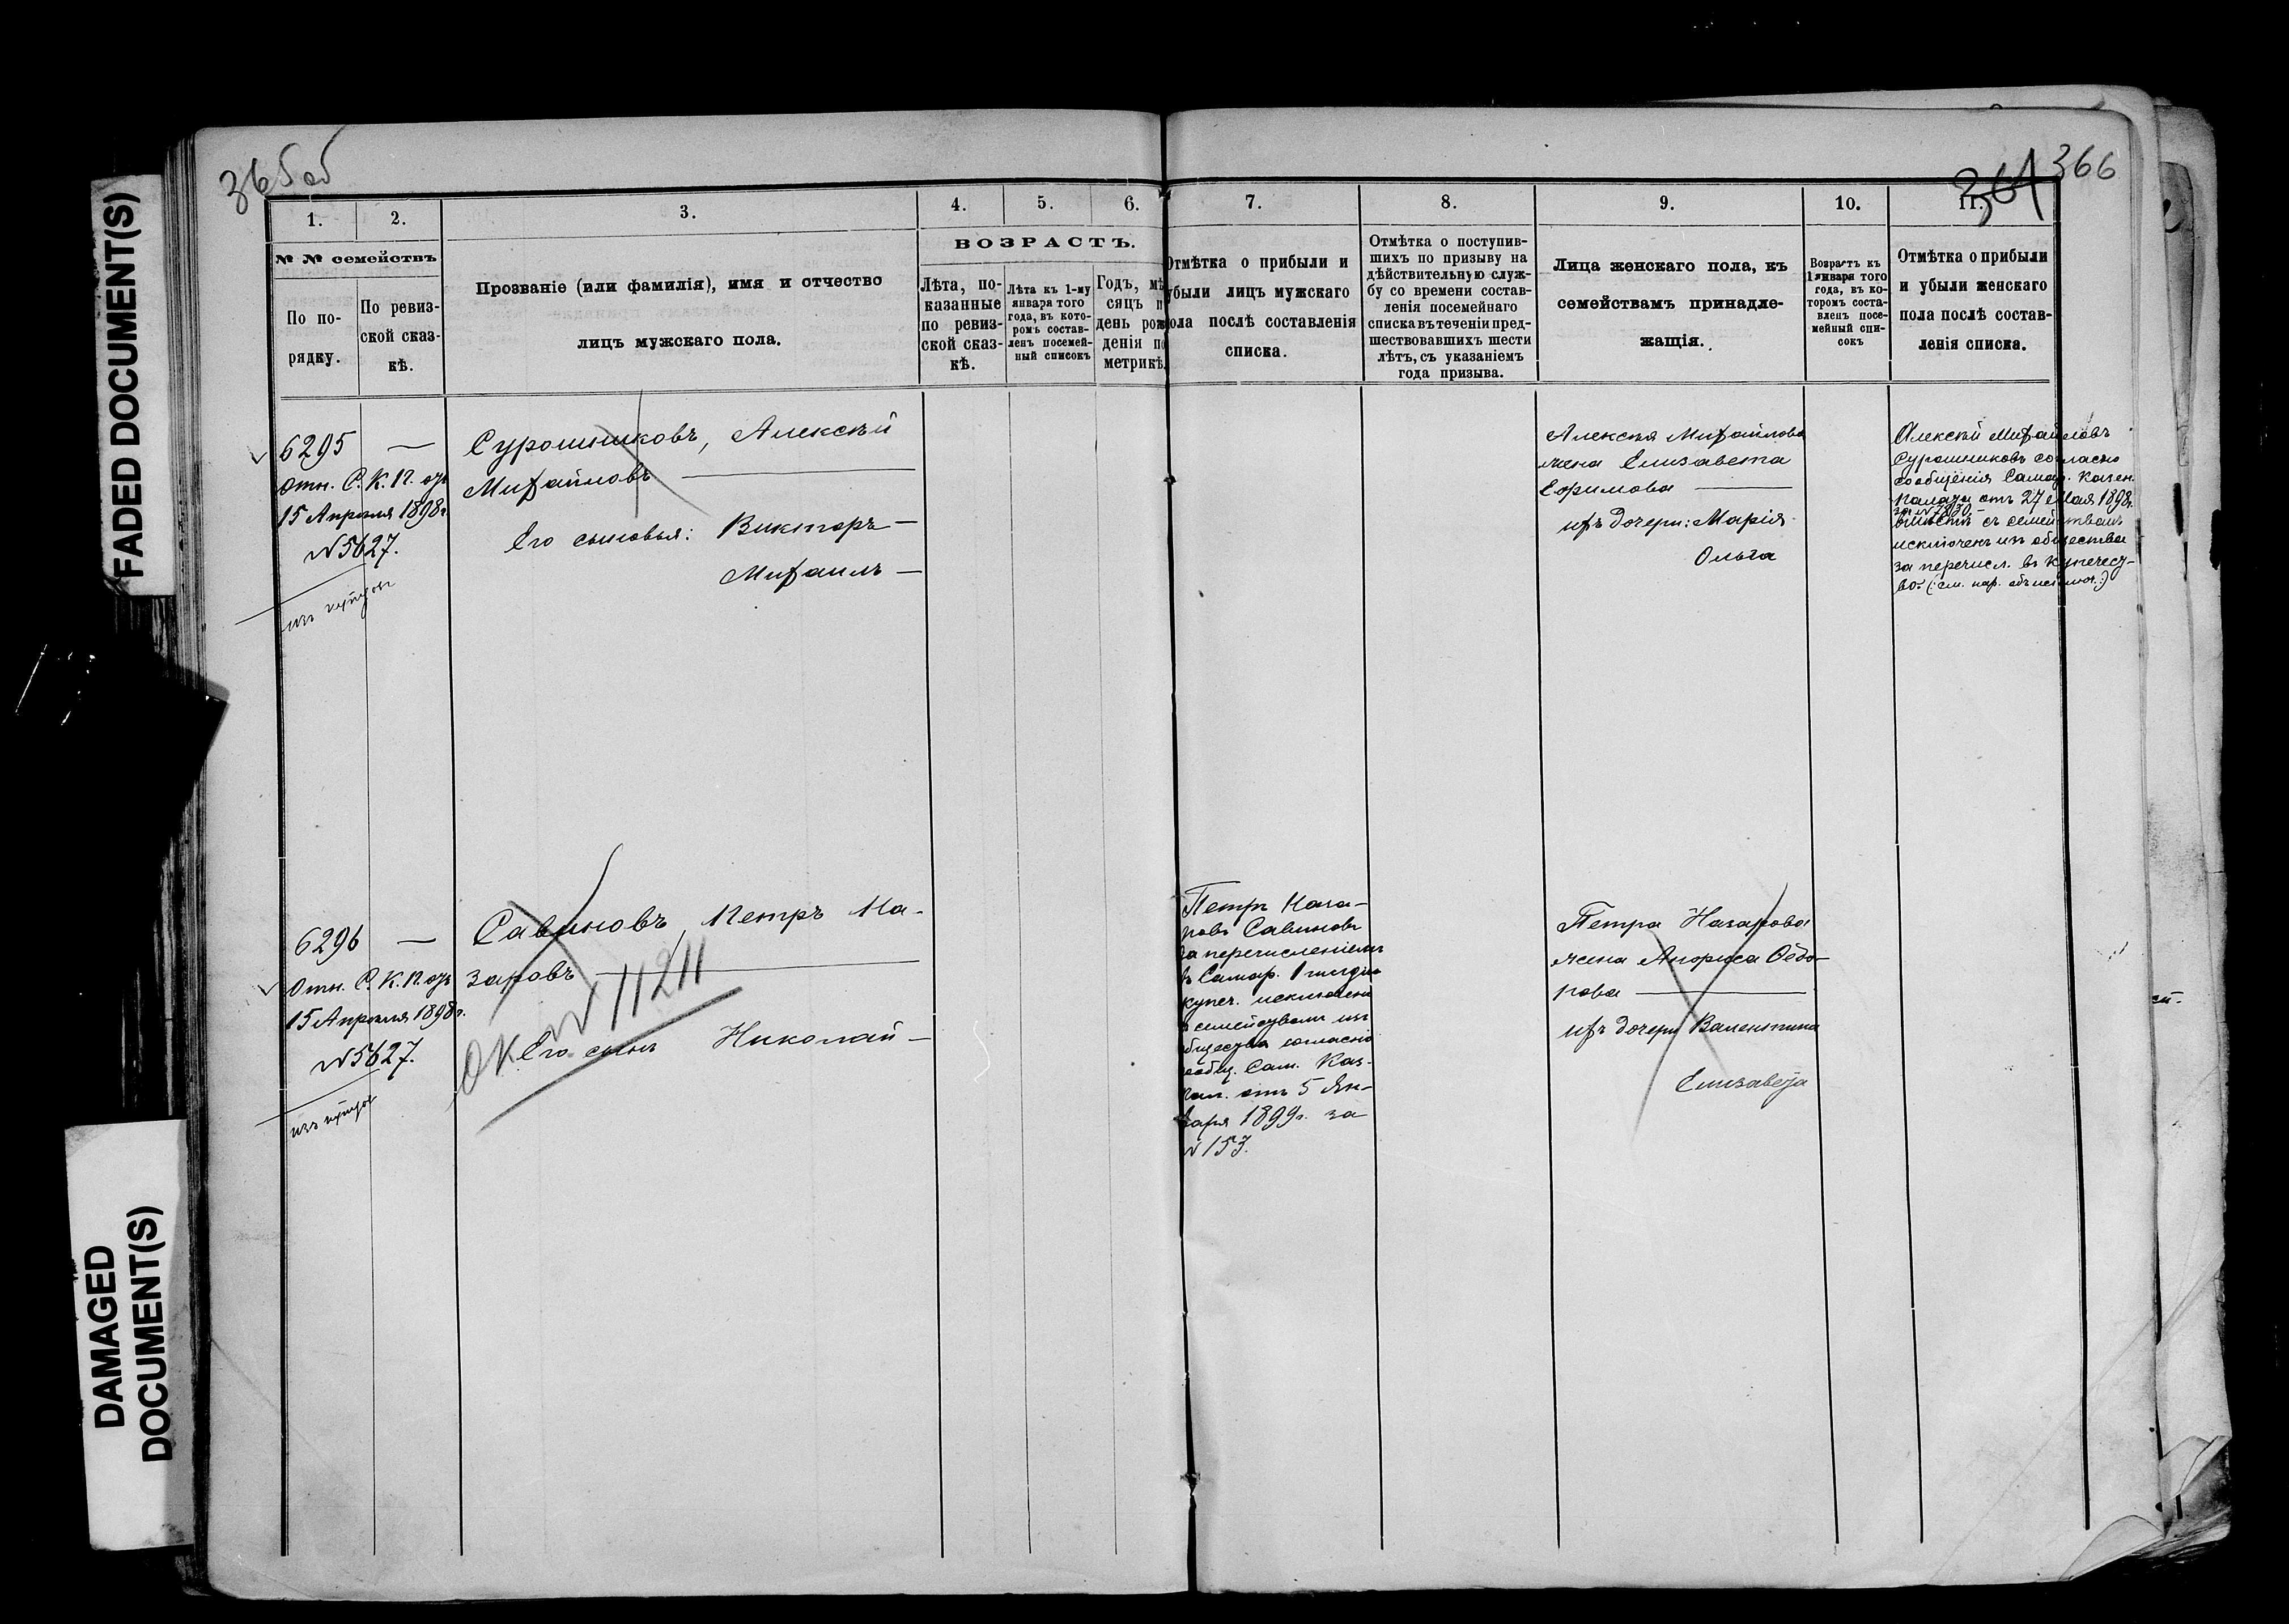 365 об
364 366
FADED DOCUMENT(S)
DAMAGED DOCUMENT(S)
1.
2.
3.
4.
5.
6.
7.
8.
9.
10.
11.
№ № семействъ
По по-
рядку.
По ревиз-
ской сказ-
кѣ.
Прозваніе (или фамилія), имя и отчество
лицъ мужскаго пола.
ВОЗРАСТЪ.
Лѣта, по-
казанные
по ревиз-
ской сказ-
кѣ.
Лѣта къ 1-му
января того
года, въ кото-
ромъ состав-
ленъ посемей-
ный списокъ
Годъ, мѣ
сяцъ п
день рож
денія по
метрикѣ.
Отмѣтка о прибыли и
убыли лицъ мужскаго
пола послѣ составленія
списка.
Отмѣтка о поступив-
шихъ по призыву на
дѣйствительную служ-
бу со времени состав-
ленія посемейнаго
списка въ теченіи пред-
шествовавшихъ шести
лѣтъ, съ указаніемъ
года призыва.
Лица женскаго пола, къ
семействамъ принадле-
жащія.
Возрастъ къ
1 января того
года, въ ко-
торомъ соста-
вленъ посе-
мейный спи-
сокъ
Отмѣтка о прибыли
и убыли женскаго
пола послѣ состав-
ленія списка.
6295 —
Отн. С. К. П. отъ
15 Апрѣля 1898 г.
№ 5627.
изъ купцовъ
Сурошниковъ, Алексѣй
Михайловъ —
Его сыновья: Викторъ —
Михаилъ —
Алексѣя Михайлова
жена Елизавета
Ефимова —
ихъ дочери: Марія
Ольга
Алексѣй Михайловъ
Сурошниковъ согласно
сообщенія Самар. Казен.
палаты отъ 27 Мая 1898 г.
за № 7830
вмѣстѣ съ семействомъ
исключенъ изъ общества
за перечисл. въ купечест-
во.
6296 —
Отн. С. К. П. отъ
15 Апрѣля 1898 г.
№ 5627.
изъ купцовъ
Савиновъ, Петръ На-
заровъ —
Его сынъ Николай —
ОК № 11211
Петръ Наза-
ровъ Савиновъ
за перечисленіемъ
въ Самар. 1 гильдіи
купеч. исключенъ
съ семействомъ изъ
общества согласно
сообщ. Сам. Каз.
пал. отъ 5 Ян-
варя 1899 г. за
№ 153.
Петра Назарова
жена Анфиса Ѳедо-
рова —
ихъ дочери Валентина
Елизавета